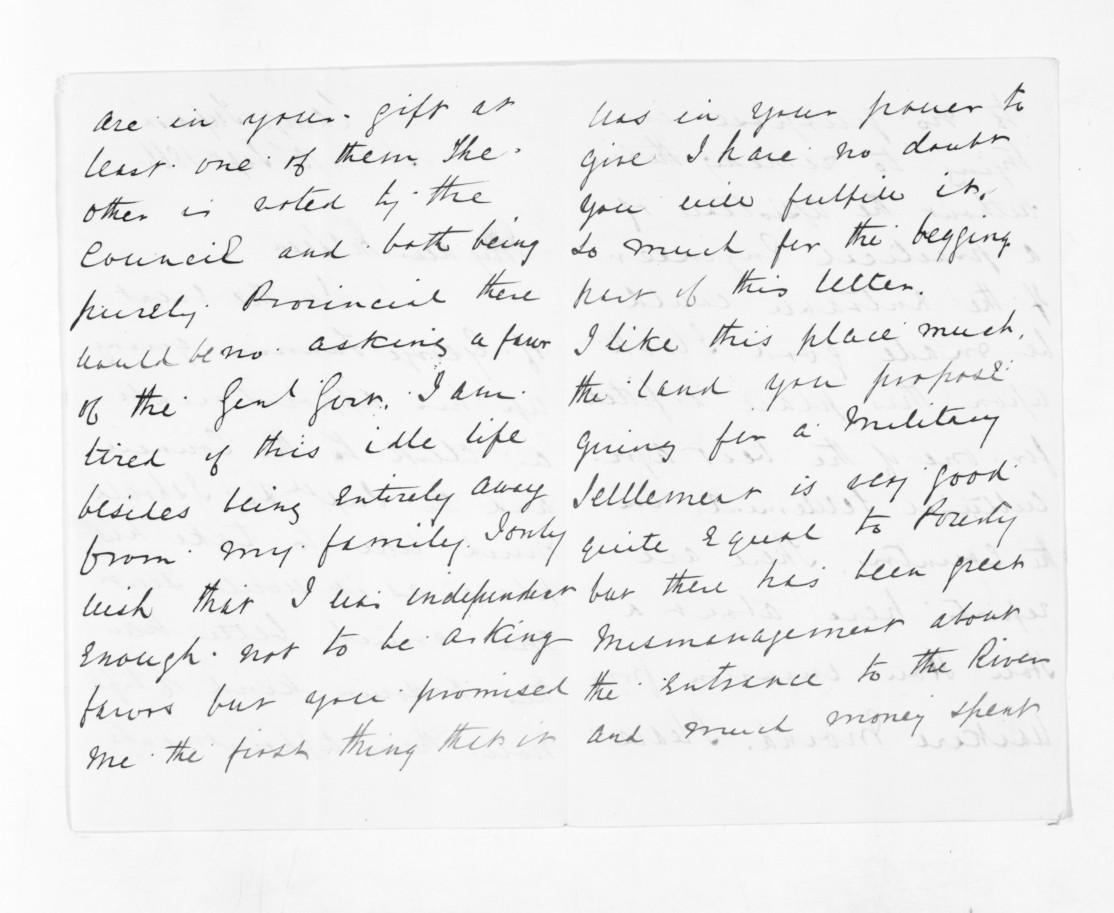 are in your gift at
least one of them. The
other is voted by the
Council and both being
purely Provincial there
would be no asking a favor
of the Genl Govt. I am
tired of this idle life
besides being entirely away
from my family. I only
wish that I was independent
enough not to be asking
favors but you promised
me the first thing that it
was in your power to
give I have no doubt
you will fulfill it.
So much for the begging
part of this letter.
I like this place much,
the land you propose
giving for a Military
Settlement is very good
quite equal to
but there has been great
mismanagement about
the entrance to the River
and much money spent